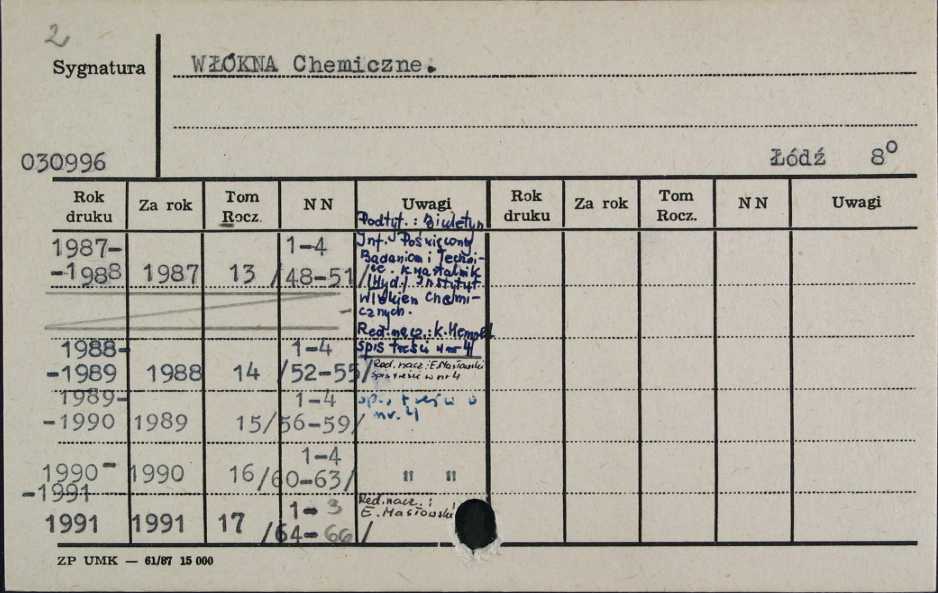 2
Sygnatura
WŁÓKNA Chemiczne.
030996
Łódź 8°
Rok druku Za rok Tom Rocz. NN Uwagi Rok druku Za rok Tom Rocz. NN Uwagi
Podtyt.: Biuletyn
1987- 1-4 Inf. Poświęcony
Badaniom i Techni-
-1988 1987 13 /48-51/
(Wyd.) Instytut
Włókien Chemi-
cznych.
Red. nacz.: K. Hempel
1988- 1-4 spis treści w nr 4
-1989 1988 14 /52-55/ Red. nacz.: E. Masłowski
Spis treści w nr 4
1989- 1-4 spis treści w
-1990 1989 15 /56-59/ nr. 4
1990- 1-4
-1991 1990 16 /60-63/ " "
Red. nacz.:
1991 1991 17 1-3 E. Masłowski
/64-66/
ZP UMK — 61/87 15 000